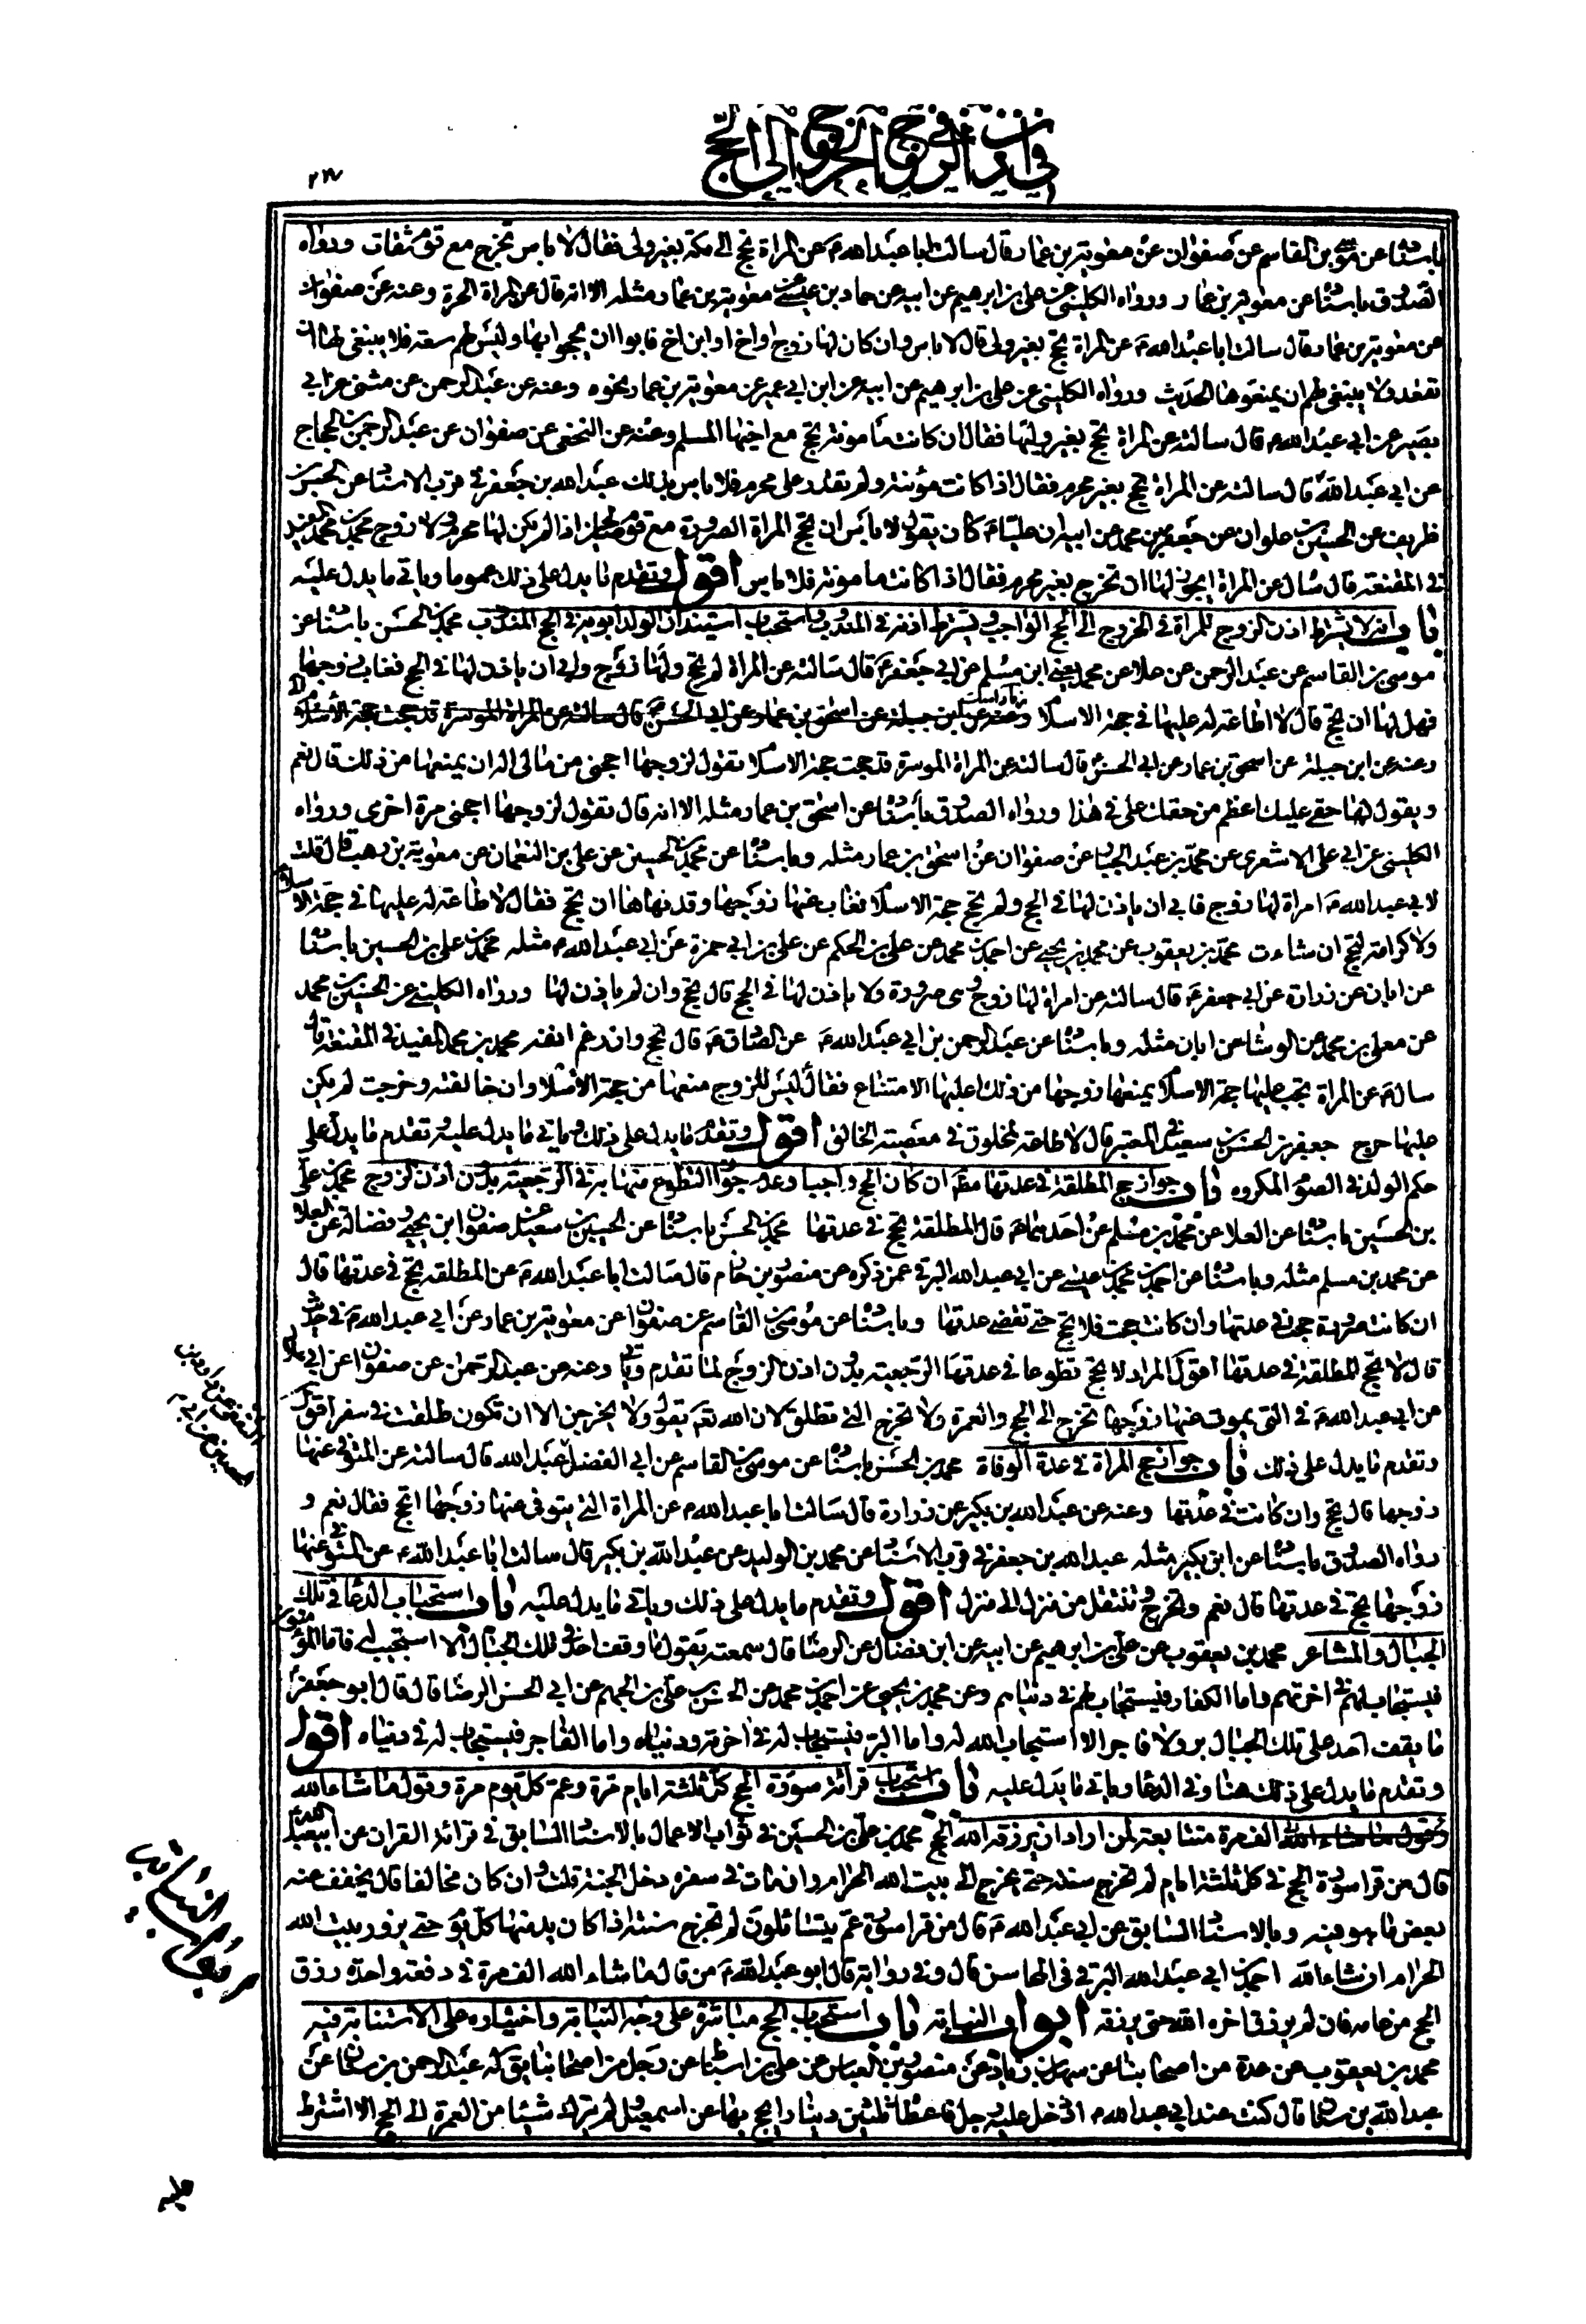 في اذن الزوج في الخروج الى الحج
باسناده عن موسى بن القاسم عن صفوان عن معوية بن عمار قال سالت ابا عبدالله ع عن المراة تحج الى مكة بغير ولى فقال لا باس تخرج مع قوم ثقات ورواه
الصدوق باسناده عن معوية بن عمار ورواه الكليني عن علي بن ابرهيم عن ابيه عن حماد بن عيسى عن معوية بن عمار مثله الا انه قال عن المراة الحرة وعنه عن صفوان
عن معوية بن عمار قال سالت ابا عبدالله ع عن المراة تحج بغير ولى قال لا باس وان كان لها زوج او اخ او ابن اخ فابوا ان يحجوا بها وليس لهم سعة فلا ينبغي لها ان
تقعد ولا ينبغي لهم ان يمنعوها الحديث ورواه الكليني عن علي بن ابرهيم عن ابيه عن ابن ابي عمير عن معوية بن عمار نحوه وعنه عن عبد الرحمن عن مثنى عن ابي
بصير عن ابي عبدالله ع قال سالته عن المراة تحج بغير وليها فقال ان كانت مامونة تحج مع اخيها المسلم وعنه عن النخعي عن صفوان عن عبد الرحمن بن الحجاج
عن ابي عبدالله ع قال سالته عن المراة تحج بغير محرم فقال اذا كانت مؤمنة ولم تقدر على محرم فلا باس بذلك عبدالله بن جعفر في قرب الاسناد عن الحسن بن
ظريف عن الحسين بن علوان عن جعفر بن محمد عن ابيه ان عليا ع كان يقول لا باس ان تحج المراة الصرورة مع قوم صالحين اذا لم يكن لها محرم ولا زوج محمد بن محمد المفيد
في المقنعة قال سئل عن المراة ايجوز لها ان تخرج بغير محرم فقال اذا كانت مامونة فلا باس اقول وتقدم ما يدل على ذلك عموما وياتي ما يدل عليه
باب انه لا يشترط اذن الزوج للمراة في الخروج الى الحج الواجب ويشترط اذنه في المندوب واستحباب استيذان الولد ابويه في الحج المندوب محمد بن الحسن باسناده عن
موسى بن القاسم عن عبد الرحمن عن علا عن محمد يعني ابن مسلم عن ابي جعفر ع قال سالته عن المراة لم تحج ولها زوج وابى ان ياذن لها في الحج فغاب زوجها
فهل لها ان تحج قال لا طاعة له عليها في حجة الاسلام وعنه عن ابن جبلة عن اسحق بن عمار عن ابي الحسن ع قال سالته عن المراة الموسرة قد حجت حجة الاسلام
وعنه عن ابن جبلة عن اسحق بن عمار عن ابي الحسن ع قال سالته عن المراة الموسرة قد حجت حجة الاسلام تقول لزوجها احجني من مالى اله ان يمنعها من ذلك قال نعم
ويقول لها حقي عليك اعظم من حقك على في هذا ورواه الصدوق باسناده عن اسحق بن عمار مثله الا انه قال تقول لزوجها احجني مرة اخرى ورواه
الكليني عن ابي على الاشعرى عن محمد بن عبد الجبار عن صفوان عن اسحق بن عمار مثله وباسناده عن محمد بن الحسين عن علي بن النعمان عن معوية بن وهب قال قلت
لابي عبدالله ع امراة لها زوج فابى ان ياذن لها في الحج ولم تحج حجة الاسلام فغاب عنها زوجها وقد نهاها ان تحج فقال لا طاعة له عليها في حجة الاسلام
ولا كرامة لتحج ان شاءت محمد بن يعقوب عن محمد بن يحيى عن احمد بن محمد عن علي بن الحكم عن علي بن ابي حمزة عن ابي عبدالله ع مثله محمد بن علي بن الحسين باسناده
عن ابان عن زرارة عن ابي جعفر ع قال سالته عن امراة لها زوج وهى صرورة ولا ياذن لها في الحج قال تحج وان لم ياذن لها ورواه الكليني عن الحسين بن محمد
عن معلى بن محمد عن الوشاء عن ابان مثله وباسناده عن عبد الرحمن بن ابي عبدالله ع عن الصادق ع قال تحج وان رغم انفه محمد بن محمد المفيد في المقنعة قال
سال ع عن المراة تجب عليها حجة الاسلام يمنعها زوجها من ذلك اعليها الامتناع فقال ليس للزوج منعها من حجة الاسلام وان خالفته وخرجت لم يكن
عليها حرج جعفر بن الحسن بن سعيد في المعتبر قال لا طاعة لمخلوق في معصية الخالق اقول وتقدم ما يدل على ذلك وياتي ما يدل عليه وتقدم ما يدل على
حكم الولد في الصوم المكروه باب جواز حج المطلقة في عدتها مطلقا ان كان الحج واجبا وعدم جواز التطوع منها به في الرجعية بدون اذن الزوج محمد بن علي
بن الحسين باسناده عن العلا عن محمد بن مسلم عن احدهما ع قال المطلقة تحج في عدتها محمد بن الحسن باسناده عن الحسين بن سعيد عن صفوان ابن يحيى وفضالة عن العلا
عن محمد بن مسلم مثله وباسناده عن احمد بن محمد بن عيسى عن ابي عبدالله البرقي عمن ذكره عن منصور بن حازم قال سالت ابا عبدالله ع عن المطلقة تحج في عدتها قال
ان كانت صرورة حجت في عدتها وان كانت حجت فلا تحج حتى تقضي عدتها وباسناده عن موسى بن القاسم عن صفوان عن معوية بن عمار عن ابي عبدالله ع في حديث
قال لا تحج المطلقة في عدتها اقول المراد لا تحج تطوعا في عدتها الرجعية بدون اذن الزوج لما تقدم وياتي وعنه عن عبد الرحمن عن صفوان عن ابي هلال
عن ابي عبدالله ع في التي يموت عنها زوجها تخرج الى الحج والعمرة ولا تخرج التي تطلق لان الله تعم يقول ولا يخرجن الا ان تكون طلقت في سفر اقول
وتقدم ما يدل على ذلك باب جواز حج المراة في عدة الوفاة محمد بن الحسن باسناده عن موسى بن القاسم عن ابي الفضل عن عبدالله قال سالته عن المتوفى عنها
زوجها قال تحج وان كانت في عدتها وعنه عن عبدالله بن بكير عن زرارة قال سالت ابا عبدالله ع عن المراة التي يتوفى عنها زوجها اتحج فقال نعم و
رواه الصدوق باسناده عن ابن بكير مثله عبدالله بن جعفر في قرب الاسناد عن محمد بن الوليد عن عبدالله بن بكير قال سالت ابا عبدالله ع عن المتوفى عنها
زوجها تحج في عدتها قال نعم وتخرج وتنتقل من منزل الى منزل اقول وتقدم ما يدل على ذلك وياتي ما يدل عليه باب استحباب الدعا في تلك
الجبال والمشاعر محمد بن يعقوب عن علي بن ابرهيم عن ابيه عن ابن فضال عن الرضا قال سمعته يقول ما وقف احد في تلك الجبال الا استجيب له فاما المؤمنون
فيستجاب لهم في اخرتهم واما الكفار فيستجاب لهم في دنياهم وعن محمد بن يحيى عن احمد بن محمد عن الحسن بن علي بن الجهم عن ابي الحسن الرضا قال قال ابو جعفر ع
ما يقف احد على تلك الجبال بر ولا فاجر الا استجاب الله له واما البر فيستجاب له في اخرته ودنياه واما الفاجر فيستجاب له في دنياه اقول
وتقدم ما يدل على ذلك هنا وفي الدعا وياتي ما يدل عليه باب استحباب قرائة سورة الحج كل ثلثة ايام مرة وعم كل يوم مرة وقول ما شاء الله
وقول ما شاء الله الف مرة متتابعة لمن اراد ان يرزقه الله الحج محمد بن علي بن الحسين في ثواب الاعمال بالاسناد السابق في قرائة القران عن ابي عبدالله ع
قال من قرا سورة الحج في كل ثلثة ايام لم تخرج سنته حتى يخرج الى بيت الله الحرام وان مات في سفره دخل الجنة قلت وان كان مخالفا قال يخفف عنه
بعض ما هو فيه وبالاسناد السابق عن ابي عبدالله ع قال من قرا سورة عم يتسائلون لم تخرج سنته اذا كان يدمنها كل يوم حتى يزور بيت الله
الحرام ان شاء الله احمد بن ابي عبدالله البرقي في المحاسن قال وفي رواية قال ابو عبدالله ع من قال ما شاء الله الف مرة في دفعة واحدة رزق
الحج من عامه فان لم يرزق اخره الله حتى يرزقه ابواب النيابة باب استحباب الحج مباشرة على وجه النيابة واختياره على الاستنابة فيه
محمد بن يعقوب عن عدة من اصحابنا عن سهل بن زياد عن منصور بن العباس عن علي بن اسباط عن رجل من اصحابنا يق له عبد الرحمن بن سنان عن
عبدالله بن سنان قال كنت عند ابي عبدالله ع اذ دخل عليه رجل فاعطاه ثلثين دينارا يحج بها عن اسمعيل لم يترك شيئا من العمرة الى الحج الا اشترط
عليه